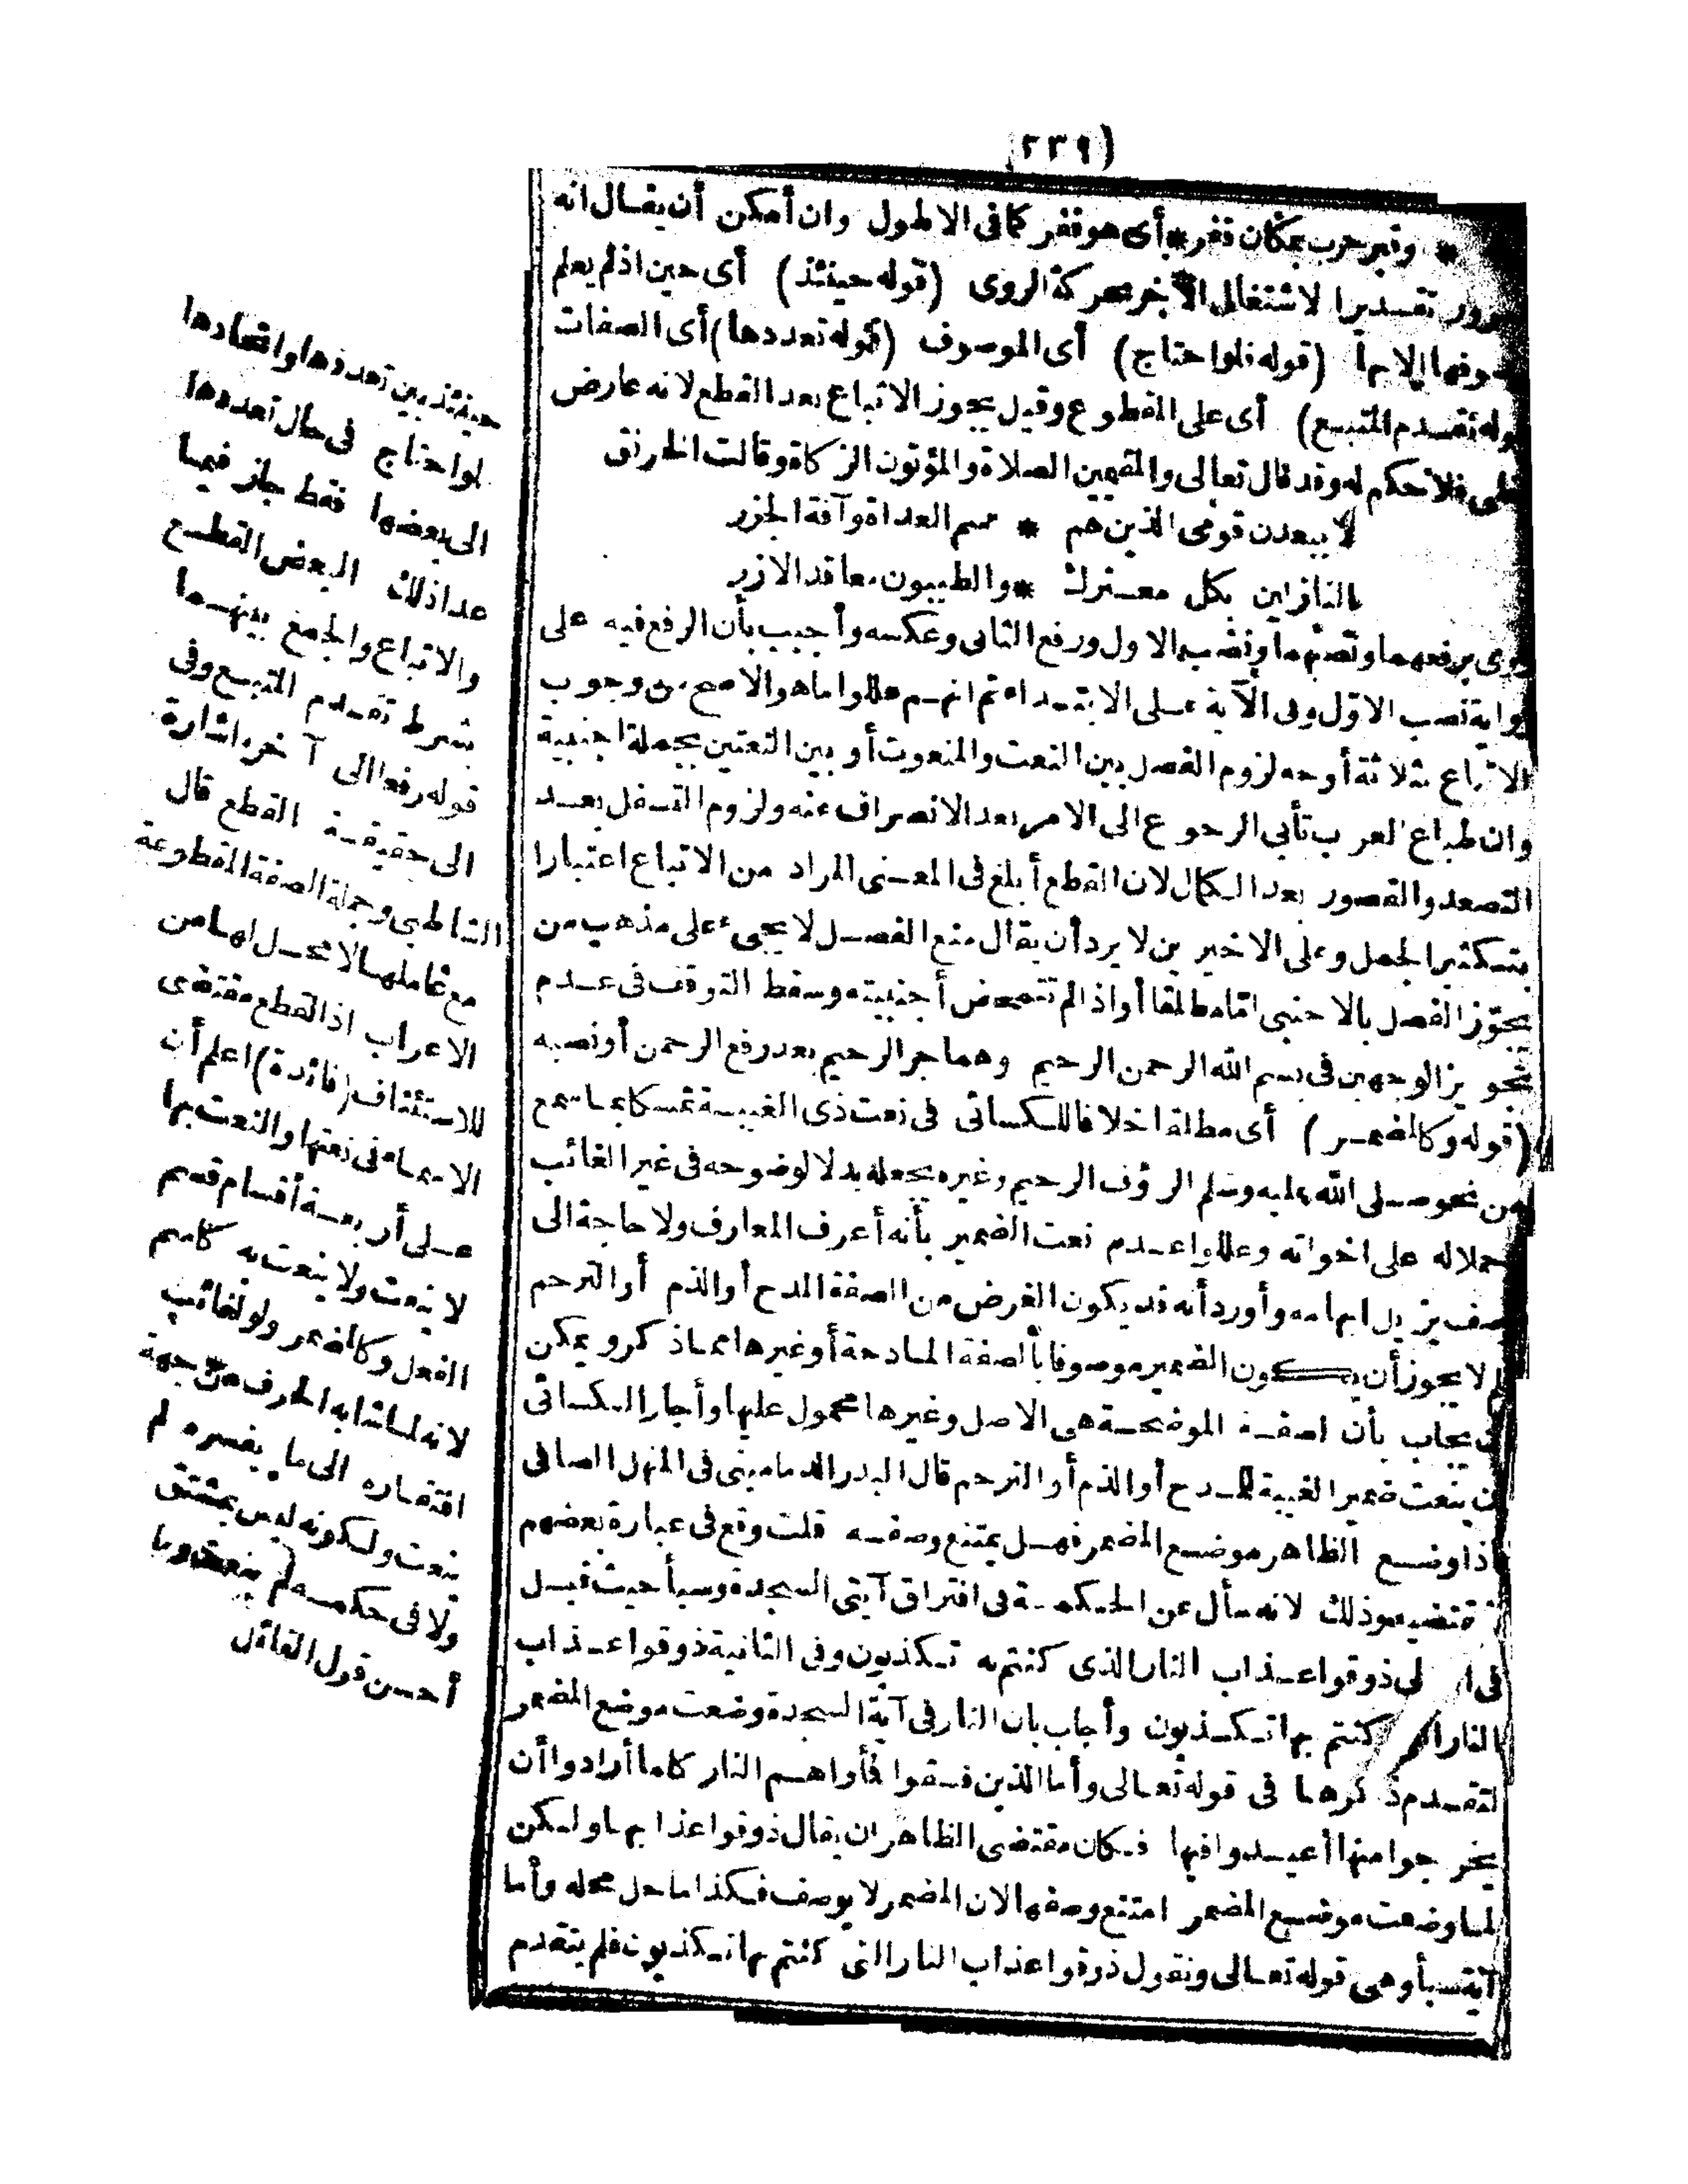 (٢٣٩)
* وقبر حرب بمكان قفر * أى هو قفر كما فى الاطول وان أمكن أن يقال انه
تقديرا لاشتغال الآخر بحركة الروى (قوله حينئذ) أى حين اذلم يعلم
موصوفها الا بها (قوله فلو احتاج) أى الموصوف (قوله تعددها) أى الصفات
(قوله تقدم المتبع) أى على المقطوع وقيل يجوز الاتباع بعد القطع لانه عارض
فلا حكم له وقد قال تعالى والمقيمين الصلاة والمؤتون الزكاة وقالت الخرنق
لا يبعدن قومى الذين هم * سم العداة وآفة الجزر
النازلين بكل معترك * والطيبون معاقد الازر
يروى برفعهما ونصبهما ونصب الاول ورفع الثانى وعكسه وأجيب بأن الرفع فيه على
رواية نصب الاوّل وفى الآية على الابتداء ثم انهم عللوا ما هو الاصح من وجوب
الاتباع بثلاثة أوجه لزوم الفصل بين النعت والمنعوت أو بين النعتين بجملة اجنبية
وان طباع العرب تأبى الرجوع الى الامر بعد الانصراف عنه ولزوم التسفل بعد
التصعد والقصور بعد الكمال لان القطع أبلغ فى المعنى المراد من الاتباع اعتبارا
بتكثير الجمل وعلى الاخيرين لا يرد أن يقال منع الفصل لا يجىء على مذهب من
يجوّز الفصل بالاجنبى اما مطلقا أو اذا لم تتمحض أجنبيته وسقط التوقف فى عدم
تجويز الوجهين فى بسم الله الرحمن الرحيم وهما جر الرحيم بعد رفع الرحمن أو نصبه
(قوله وكالضمير) أى مطلقا خلافا للكسائى فى نعت ذى الغيبة تمسكا بما سمع
من نحو صلى الله عليه وسلم الرؤف الرحيم وغيره يجعله بدلا لوضوحه فى غير الغائب
حملا له على اخواته وعللوا عدم نعت الضمير بأنه أعرف المعارف ولا حاجة الى
وصف يزيل ابهامه وأورد أنه قد يكون الغرض من الصفة المدح أو الذم أو الترحم
لم لا يجوز أن يكون الضمير موصوفا بالصفة المادحة أو غيرها مما ذكر ويمكن
أن يجاب بأن الصفة الموضحة هى الاصل وغيرها محمول عليها وأجاز الكسائى
أن ينعت ضمير الغيبة للمدح أو الذم أو الترحم قال البدر الدمامينى فى المنهل الصافى
اذا وضع الظاهر موضع المضمر فهل يمتنع وصفه قلت وقع فى عبارة بعضهم
ما يقتضيه وذلك لانه سأل عن الحكمة فى افتراق آيتى السجدة وسبأ حيث قيل
فى الاولى ذوقوا عذاب النار الذى كنتم به تكذبون وفى الثانية ذوقوا عذاب
النار التى كنتم بها تكذبون وأجاب بان النار فى آية السجدة وضعت موضع المضمر
لتقدم ذكرها فى قوله تعالى وأما الذين فسقوا فمأواهم النار كلما أرادوا أن
يخرجوا منها أعيدوا فيها فكان مقتضى الظاهر ان يقال ذوقوا عذابها ولكن
لما وضعت موضع المضمر امتنع وصفها لان المضمر لا يوصف فكذا ما حل محله وأما
آية سبأ وهى قوله تعالى ونقول ذوقوا عذاب النار التى كنتم بها تكذبون فلم يتقدم
حينئذ بين تعددها واتحادها
لو احتاج فى حال تعددها
الى بعضها فقط جاز فيما
عدا ذلك البعض القطع
والاتباع والجمع بينهما
بشرط تقدم المتبع وفى
قوله رفعا الى آخره اشارة
الى حقيقة القطع قال
الشاطبى وجملة الصفة المقطوعة
مع عاملها لا محل لها من
الاعراب اذ القطع مقتضى
للاستئناف (فائدة) اعلم أن
الاسماء فى نعتها والنعت بها
على أربعة أقسام قسم
لا ينعت ولا ينعت به كاسم
الفعل وكالضمير ولو لغائب
لانه لما شابه الحرف من جهة
افتقاره الى ما يفسره لم
ينعت ولكونه ليس بمشتق
ولا فى حكمه لم ينعت به وما
أحسن قول القائل